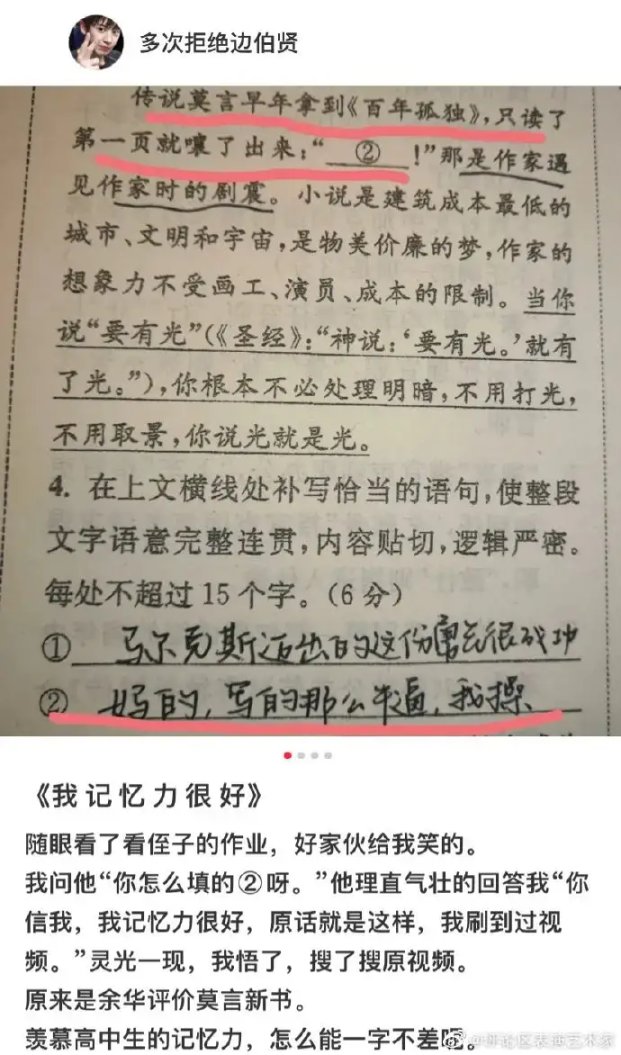 多次拒绝边伯贤
传说莫言早年拿到《百年孤独》，只读了
第一页就嚷了出来：“②！”那是作家遇
见作家时的剧震。小说是建筑成本最低的
城市、文明和宇宙，是物美价廉的梦，作家的
想象力不受画工、演员、成本的限制。当你
说“要有光”（《圣经》：“神说：‘要有光。’就有
了光。”），你根本不必处理明暗，不用打光，
不用取景，你说光就是光。
4. 在上文横线处补写恰当的语句，使整段
文字语意完整连贯，内容贴切，逻辑严密。
每处不超过15个字。（6分）
① 马尔克斯迈出的这份寓言很成功
② 妈的，写的那么牛逼，我操
《我记忆力很好》
随眼看了看侄子的作业，好家伙给我笑的。
我问他“你怎么填的②呀。”他理直气壮的回答我“你
信我，我记忆力很好，原话就是这样，我刷到过视
频。”灵光一现，我悟了，搜了搜原视频。
原来是余华评价莫言新书。
羡慕高中生的记忆力，怎么能一字不差呢。